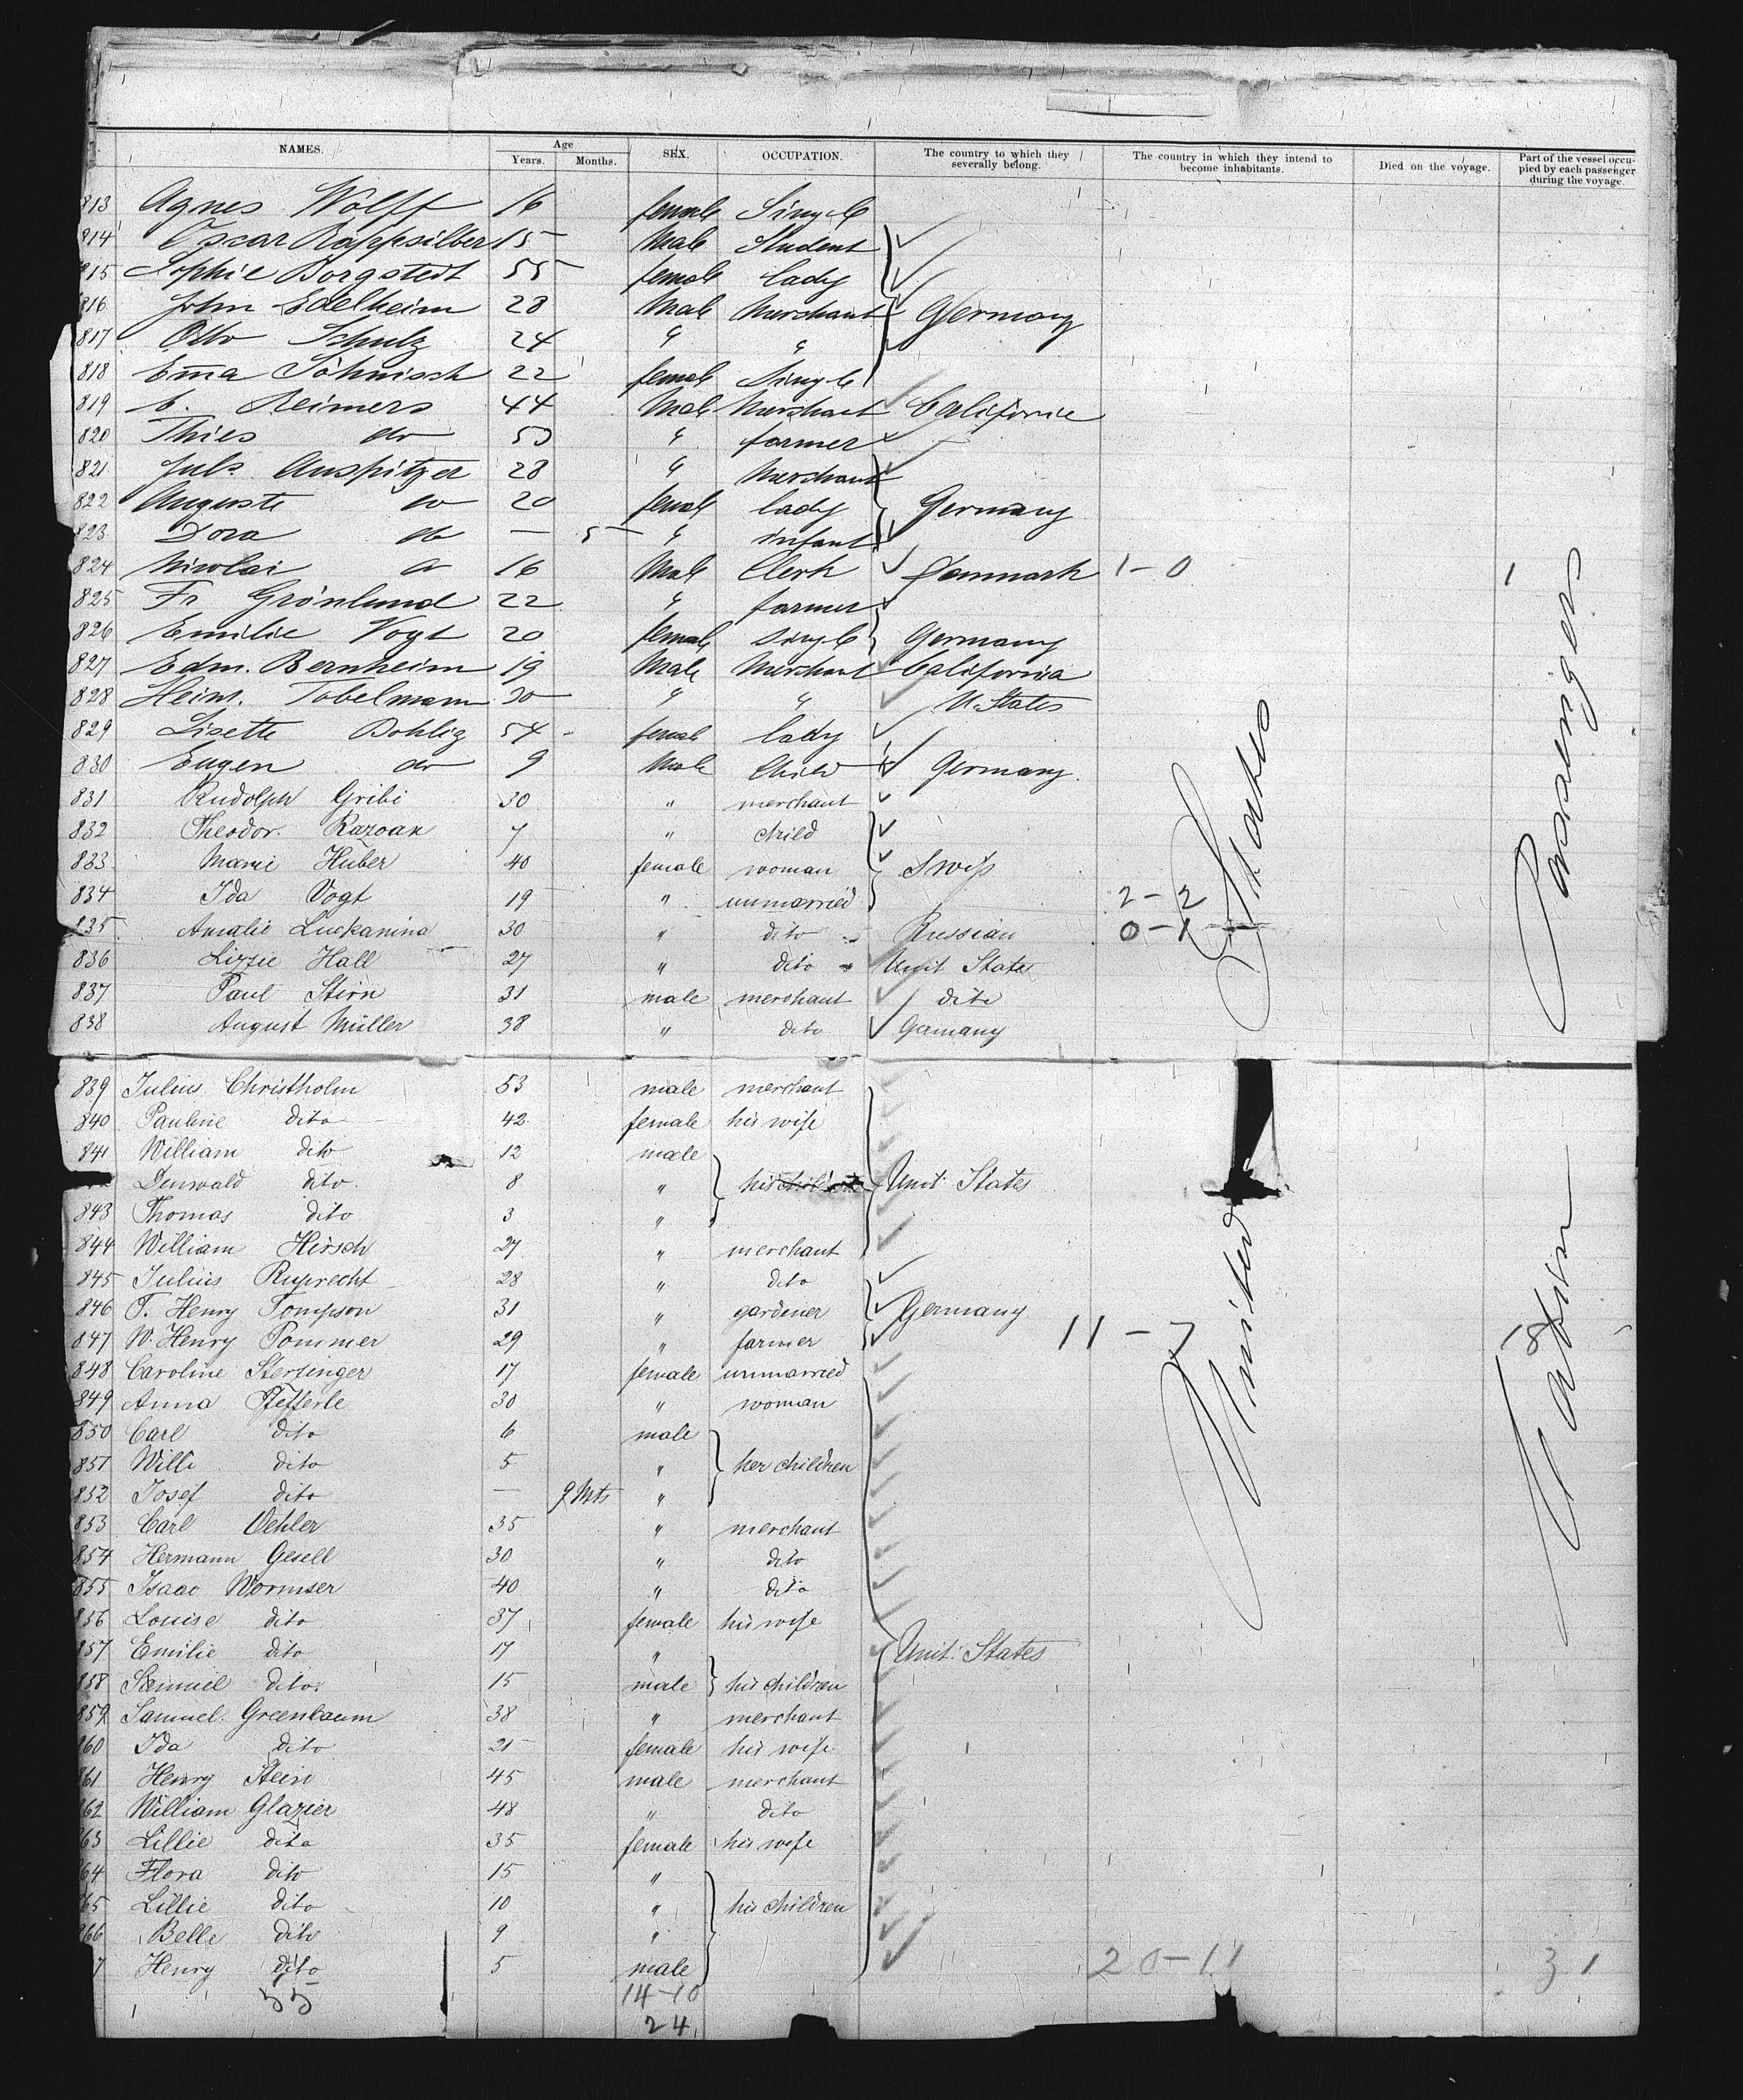 NAMES. Age Years. Months. SEX. OCCUPATION. The country to which they severally belong. The country in which they intend to become inhabitants. Died on the voyage. Part of the vessel occupied by each passenger during the voyage.
813 Agnes Wolff 16 female Single
814 Oscar Rappsilber 15 Male Student
815 Sophie Borgstedt 55 female lady
816 John Edelheim 28 Male Merchant Germany
817 Otto Schulz 24 " "
818 Em̄a Söhnisch 22 female Single
819 Reimers 44 Male Merchant California
820 Thies do " farmer
821 Juls. Auspitzer 28 " Merchant
822 Auguste do 20 female lady Germany
823 Dora do — 5 " infant
824 Nicolai do 16 Male Clerk Danmark 1-0 1
825 Fr Grönlund 22 " farmer
826 Emilie Vogt 20 female single Germany
827 Edm. Bernheim 19 Male Merchant California
828 Heinr. Tobelmann 30 " " U. States
829 Lisette Bohlig 54 female lady
830 Eugen do 9 Male Child Germany.
831 Rudolph Gribi 30 " merchant
832 Theodor. Razoax 7 " child
833 Marie Huber 40 female woman Swiss
834 Ida Vogt 19 " unmarried 2-2
835 Amalie Luckanina 30 " dito Russian 0-1
836 Lizzie Hall 27 " dito Unit State
837 Paul Stirn 31 male merchant dito
838 August Müller 38 " dito Gemany
839 Julius Christholm 53 male merchant
840 Pauline dito 42 female his wife
841 William dito 12 male
dito. 8 " his children Unit States
843 Thomas dito 3 "
844 William Hirsch 27 " merchant
845 Julius Ruprecht 28 " dito
846 T. Henry Tompson 31 " gardener Germany
847 W. Henry Pommer 29 " farmer 11-7 18
848 Caroline Stersinger 17 female unmarried
849 Anna Pfefferle 30 " woman
850 Carl dito 6 male
851 Willi dito 5 " her children
852 Josef dito — 9 Mts "
853 Carl Oehler 35 " merchant
854 Hermann Gesell 30 " dito
855 Isaac Wormser 40 " dito
856 Louise dito 37 female his wife
857 Emilie dito 17 " Unit. States
858 Samuel dito. 15 male his children
859 Samuel Greenbaum 38 " merchant
860 Ida dito 21 female his wife
861 Henry Stein 45 male merchant
862 William Glazier 48 " dito
863 Lillie dito 35 female his wife
864 Flora dito 15 "
865 Lillie dito 10 " his children
866 Belle dito 9 "
7 Henry dito 5 male 20-11 31
55 14-10
24
United States
Cabin Passengers